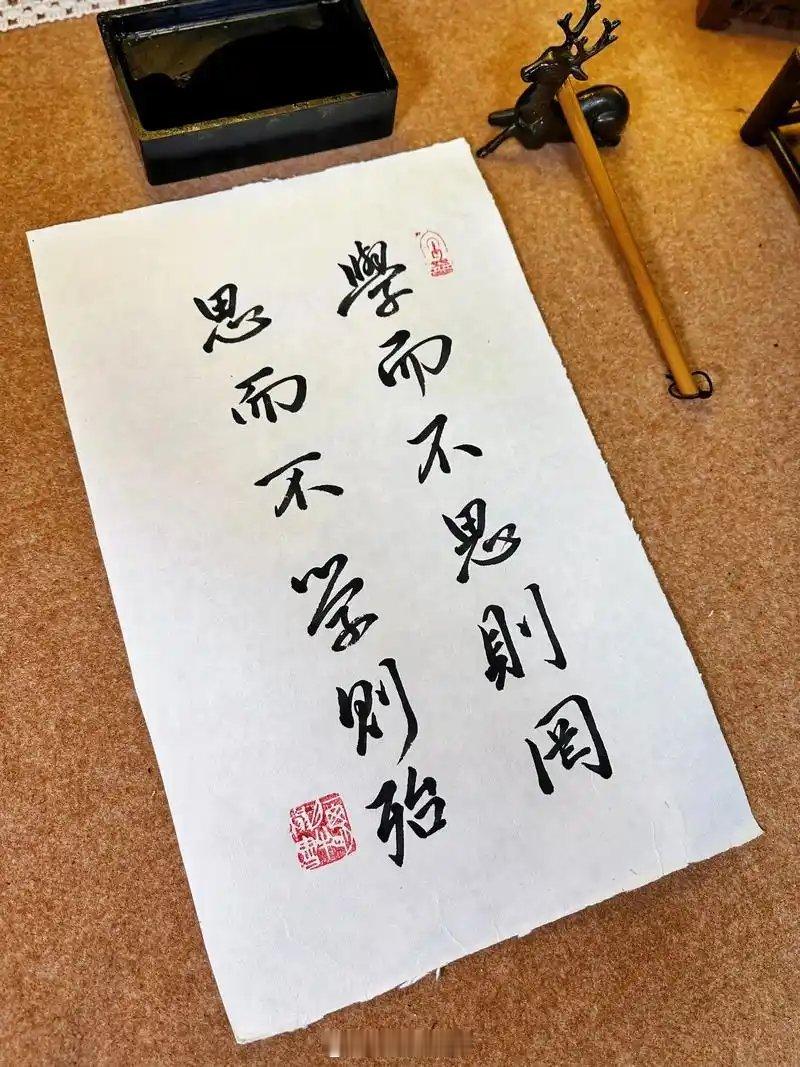 學而不思則罔
思而不学則殆